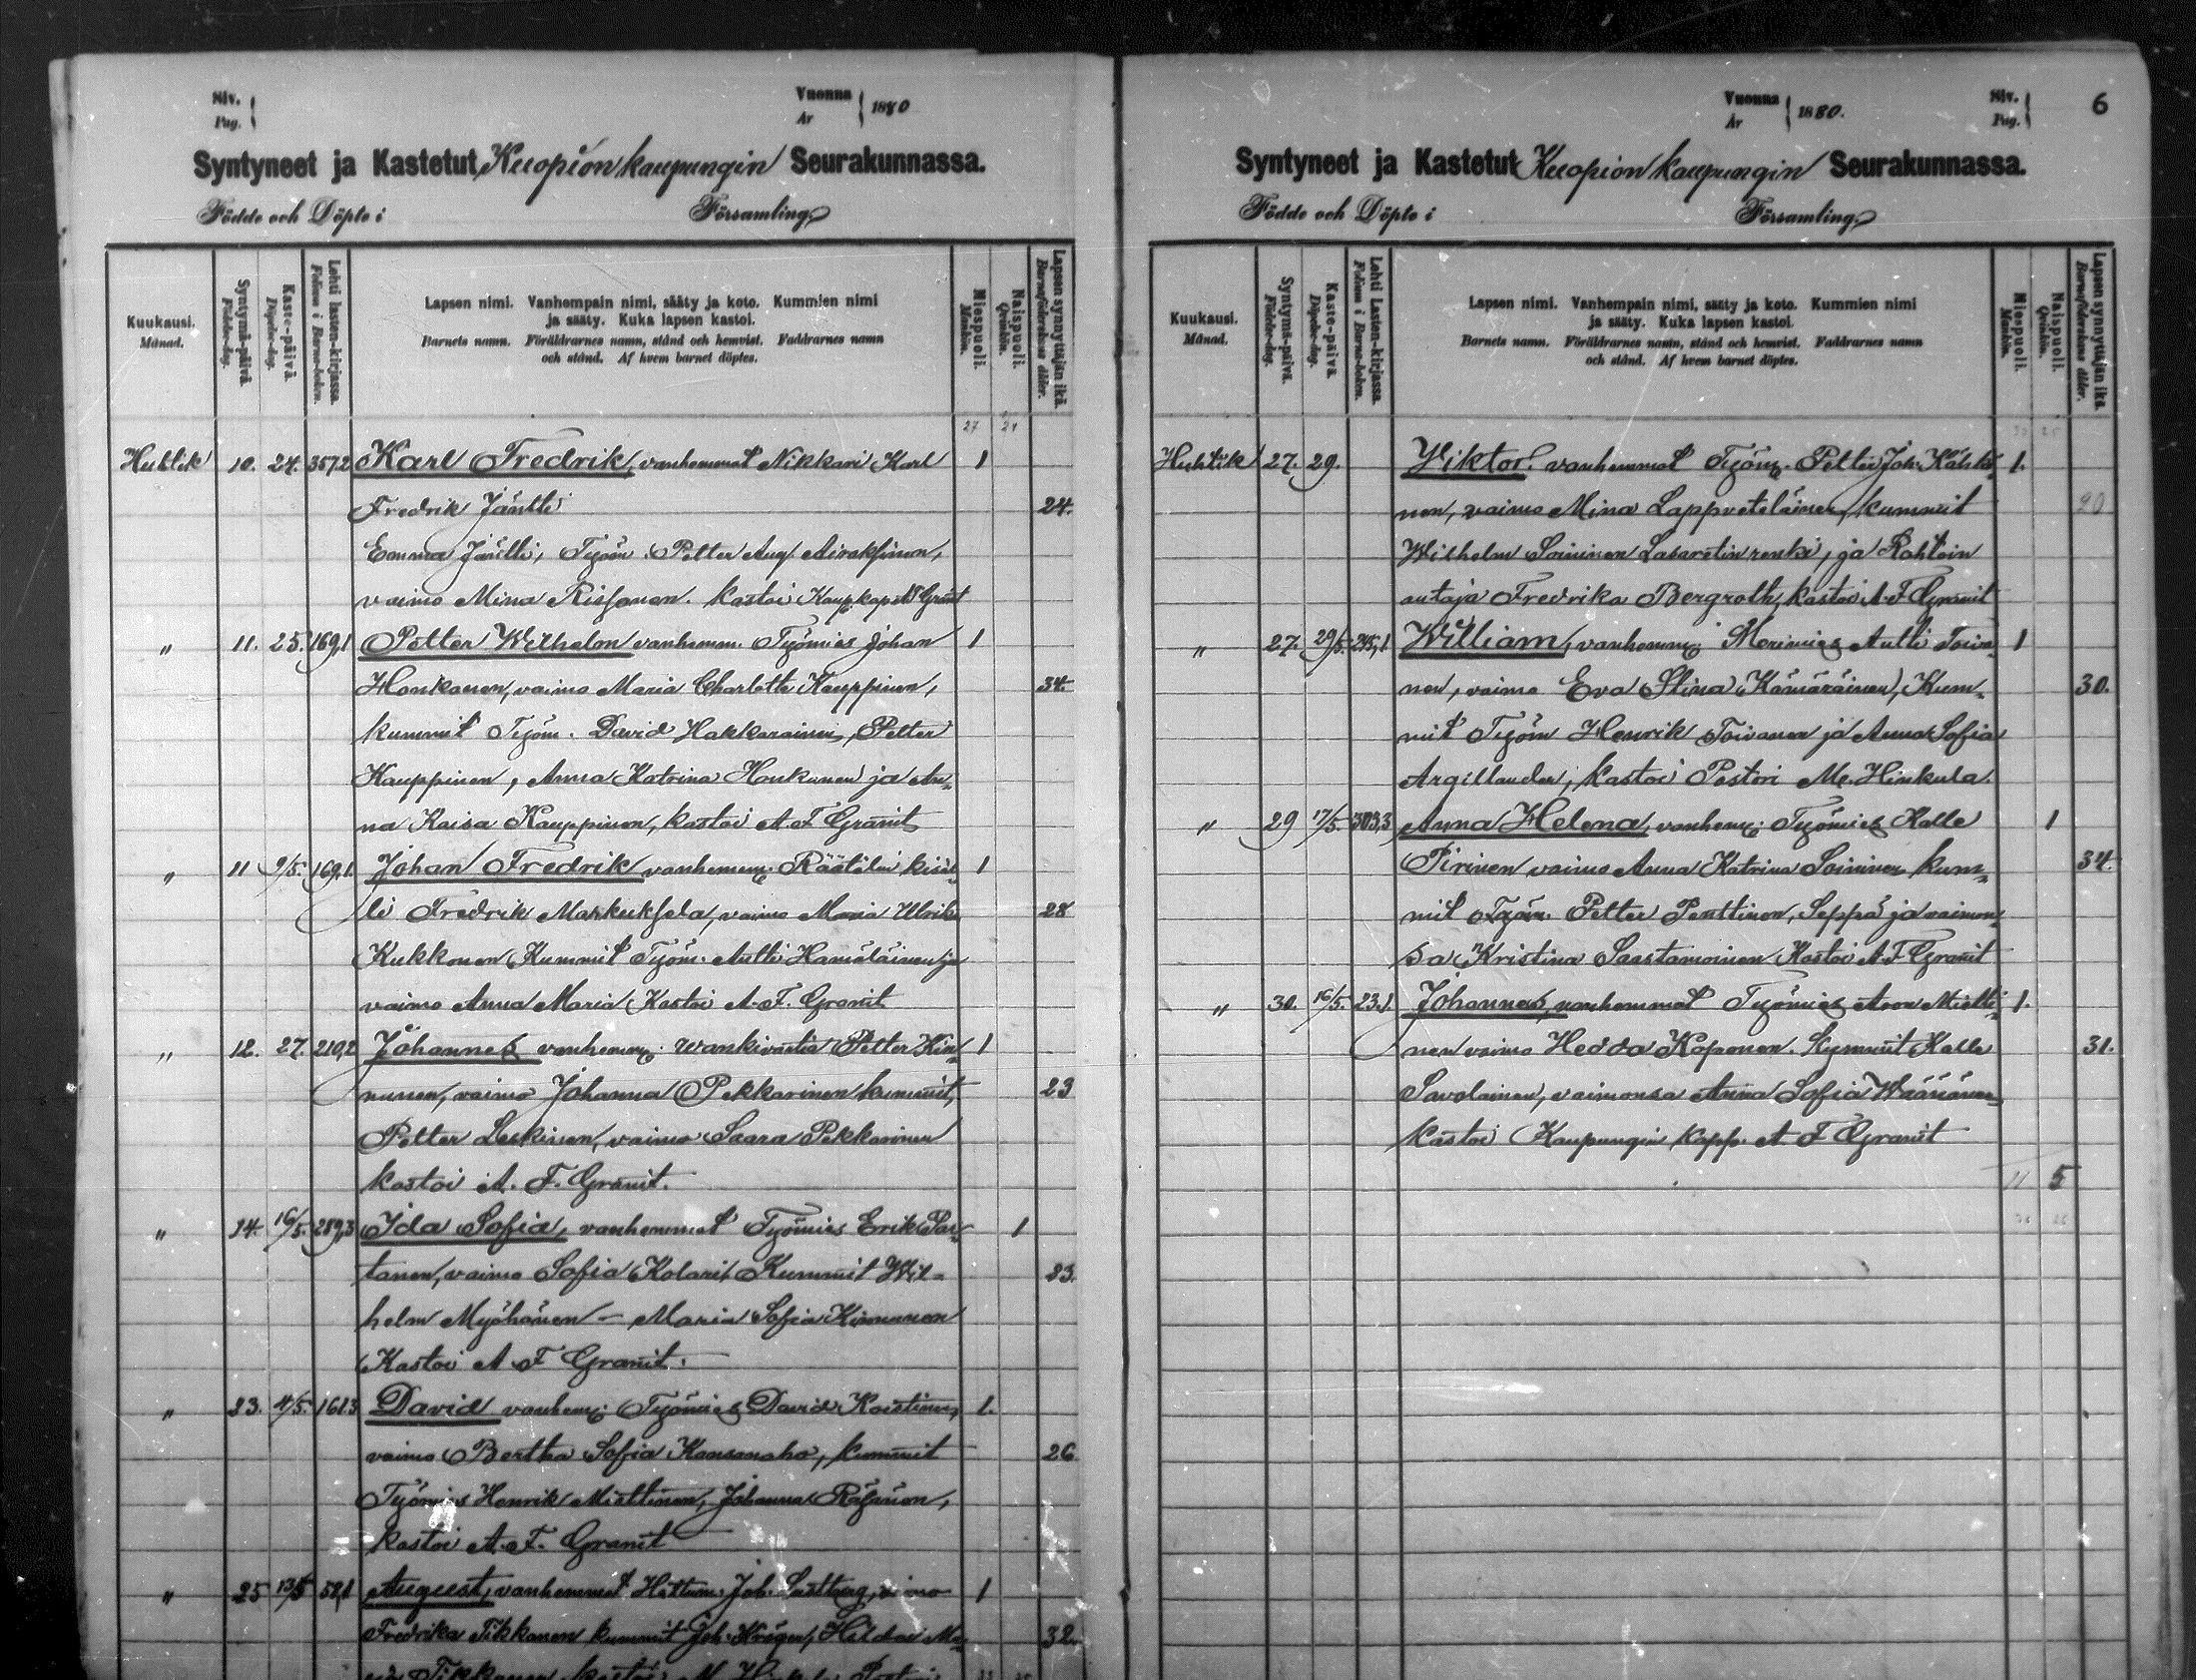 Siv.
Pag.
Vuonna
År
1880
Syntyneet ja Kastetut Kuopion kaupungin Seurakunnassa.
Födde och Döpte i Församling
Kuukausi.
Månad.
Syntymä-päivä.
Födelse-dag.
Kaste-päivä.
Döpelse-dag.
Lehti lasten-kirjassa.
Folium i Barna-boken.
Lapsen nimi. Vanhempain nimi, sääty ja koto. Kummien nimi
ja sääty. Kuka lapsen kastoi.
Barnets namn. Föräldrarnes namn, stånd och hemvist. Faddrarnes namn
och stånd. Af hvem barnet döptes.
Miespuoli.
Mankön.
Naispuoli.
Qvinkön.
Lapsen synnyttäjän ikä.
Barnaföderskans ålder.
27 21
Huhtik 10. 24. 357,2 Karl Fredrik, vanhemmat Nikkari Karl 1
Fredrik Jäntti 24.
Emma Jäntti, Työm Petter Aug. Airaksinen,
vaimo Mina Rissanen. kastoi Kaup. kapel. Granit
" 11. 25. 169,1 Petter Wilhelm vanhemm. Työmies Johan 1
Honkanen, vaimo Maria Charlotta Kauppinen, 34.
kummit Työm. David Hakkarainen, Petter
Kauppinen, Anna Katrina Honkanen ja An-
na Kaisa Kauppinen, kastoi A. F Granit
" 11 9/5. 169,1. Johan Fredrik vanhemm. Räätälin kisäl- 1
li Fredrik Markuksela, vaimo Maria Ulrika 28
Kukkonen Kummit Työm. Antti Hämäläinen ja
vaimo Anna Maria Kastoi A. F. Granit
" 12. 27. 210,2 Johannes vanhemm. wankivartia Petter Kin- 1
nunen, vaimo Johanna Pekkarinen kummit, 23
Petter Leskinen, vaimo Saara Pekkarinen
kastoi A. F. Granit.
" 14. 16/5. 289,3 Ida Sofia, vanhemmat Työmies Erik Par- 1
tanen, vaimo Sofia Kolari, Kummit Wil- 23.
helm Myöhänen – Maria Sofia Kinnunen
Kastoi A F Granit.
" 23. 4/5. 161.3 David vanhem. Työmies David Koistinen, 1.
vaimo Bertha Sofia Kansanaho, kummit 26
Työmies Henrik Miettinen, Johanna Räsänen,
kastoi A. F. Granit
" 25 13/5 58,1 August, vanhemmat Joh. vaimo 1
Fredrika Tikkanen kummit Joh. Kröger, Hilda Ma- 32.
ria Tikkanen kastoi M. Hinkula Pastori
Vuonna
År
1880.
Siv.
Pag.
6
Syntyneet ja Kastetut Kuopion kaupungin Seurakunnassa.
Födde och Döpte i Församling.
Kuukausi.
Månad.
Syntymä-päivä.
Födelse-dag.
Kaste-päivä.
Döpelse-dag.
Lehti Lasten-kirjassa.
Folium i Barna-boken.
Lapsen nimi. Vanhempain nimi, sääty ja koto. Kummien nimi
ja sääty. Kuka lapsen kastoi.
Barnets namn. Föräldrarnes namn, stånd och hemvist. Faddrarnes namn
och stånd. Af hvem barnet döptes.
Miespuoli.
Mankön.
Naispuoli.
Qvinkön.
Lapsen synnyttäjän ikä.
Barnaföderskans ålder.
Huhtik 27. 29. Wiktor. vanhemmat Työm. Petter Joh. Kähkö- 1.
nen, vaimo Mina Lappveteläinen, kummit 20
Wilhelm Soininen Lasaretin renki, ja Kohtoin
autaja Fredrika Bergroth, kastoi A. F Granit
" 27. 29/5. 245,1 William, vanhemm. Merimies Antti Toiva- 1
nen, vaimo Eva Stina Kämäräinen, Kum- 30.
mit Työm Henrik Toivanen ja Anna Sofia
Argillander, kastoi Pastori M. Hinkula.
" 29 17/5. 303,3 Anna Helena, vanhem. Työmies Kalle 1
Pirinen vaimo Anna Katrina Soininen kum- 34.
mit Työm. Petter Penttinen, Seppä ja vaimon-
sa Kristina Saastamoinen Kastoi A. F Granit
" 30. 16/5. 23.1. Johannes, vanhemmat Työmies Aron Mietti- 1.
nen vaimo Hedda Koponen. Kummit Kalle 31.
Savolainen, vaimonsa Anna Sofia Wäänänen
kastoi Kaupungin kapp. A F Granit
11 5